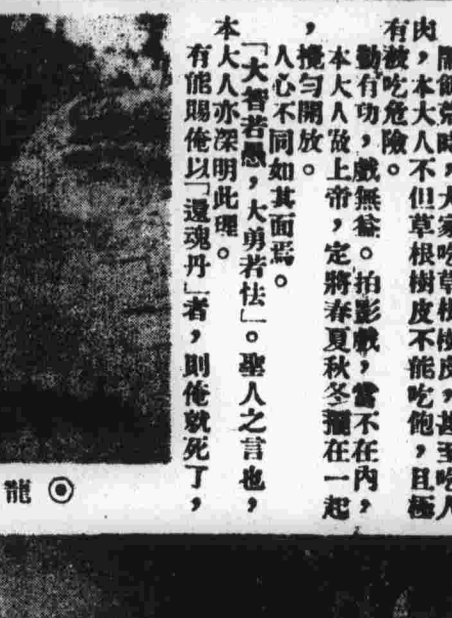 鬧飢荒時，大家吃草根樹皮，甚至吃人
肉，本大人不但草根樹皮不能吃飽，且極
有被吃危險。
勤有功，戲無益。拍影戲，當不在內，
本大人做上帝，定將春夏秋冬擺在一起
，攪勻開放。
人心不同如其面焉。
「大智若愚，大勇若怯」。聖人之言也，
本大人亦深明此理。
有能賜俺以「還魂丹」者，則俺就死了，
◉龍